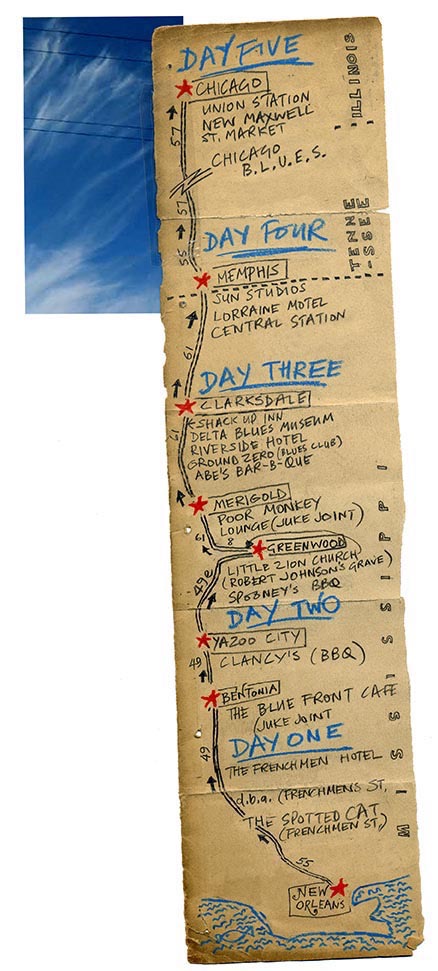 DAY FIVE
CHICAGO
UNION STATION
NEW MAXWELL
ST. MARKET
CHICAGO
B.L.U.E.S.
ILLINOIS
57
57
55
DAY FOUR
MEMPHIS
TENNE
-SSEE
SUN STUDIOS
LORRAINE MOTEL
CENTRAL STATION
61
DAY THREE
CLARKSDALE
SHACK UP INN
DELTA BLUES MUSEUM
RIVERSIDE HOTEL
GROUND ZERO (BLUES CLUB)
ABE'S BAR-B-QUE
61
MERIGOLD
POOR MONKEY
LOUNGE (JUKE JOINT)
61
8
GREENWOOD
LITTLE ZION CHURCH
(ROBERT JOHNSON'S GRAVE)
SPOONEY'S BBQ
49e
DAY TWO
YAZOO CITY
CLANCY'S (BBQ)
49
BENTONIA
THE BLUE FRONT CAFE
(JUKE JOINT
MISSISSIPPI
DAY ONE
THE FRENCHMEN HOTEL
49
d.b.a. (FRENCHMENS ST,
THE SPOTTED CAT
(FRENCHMEN ST,)
55
NEW
ORLEANS